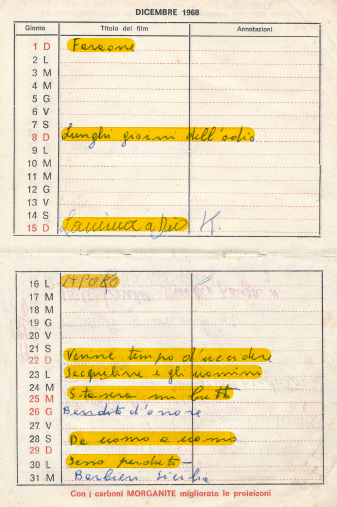 DICEMBRE 1968
Giorno Titolo del film Annotazioni
1 D Faraone
2 L
3 M
4 M
5 G
6 V
7 S
8 D Lunghi giorni dell'odio
9 L
10 M
11 M
12 G
13 V
14 S
15 D K.
16 L
17 M
18 M
19 G
20 V
21 S
22 D Venne tempo d'uccidere
23 L Jacqueline e gli uomini
24 M
25 M Stasera mi butto
26 G Bandito d'onore
27 V
28 S Da uomo a uomo
29 D
30 L Seno perduto -
31 M Barbiere Siviglia
Con i carboni MORGANITE migliorate le proiezioni